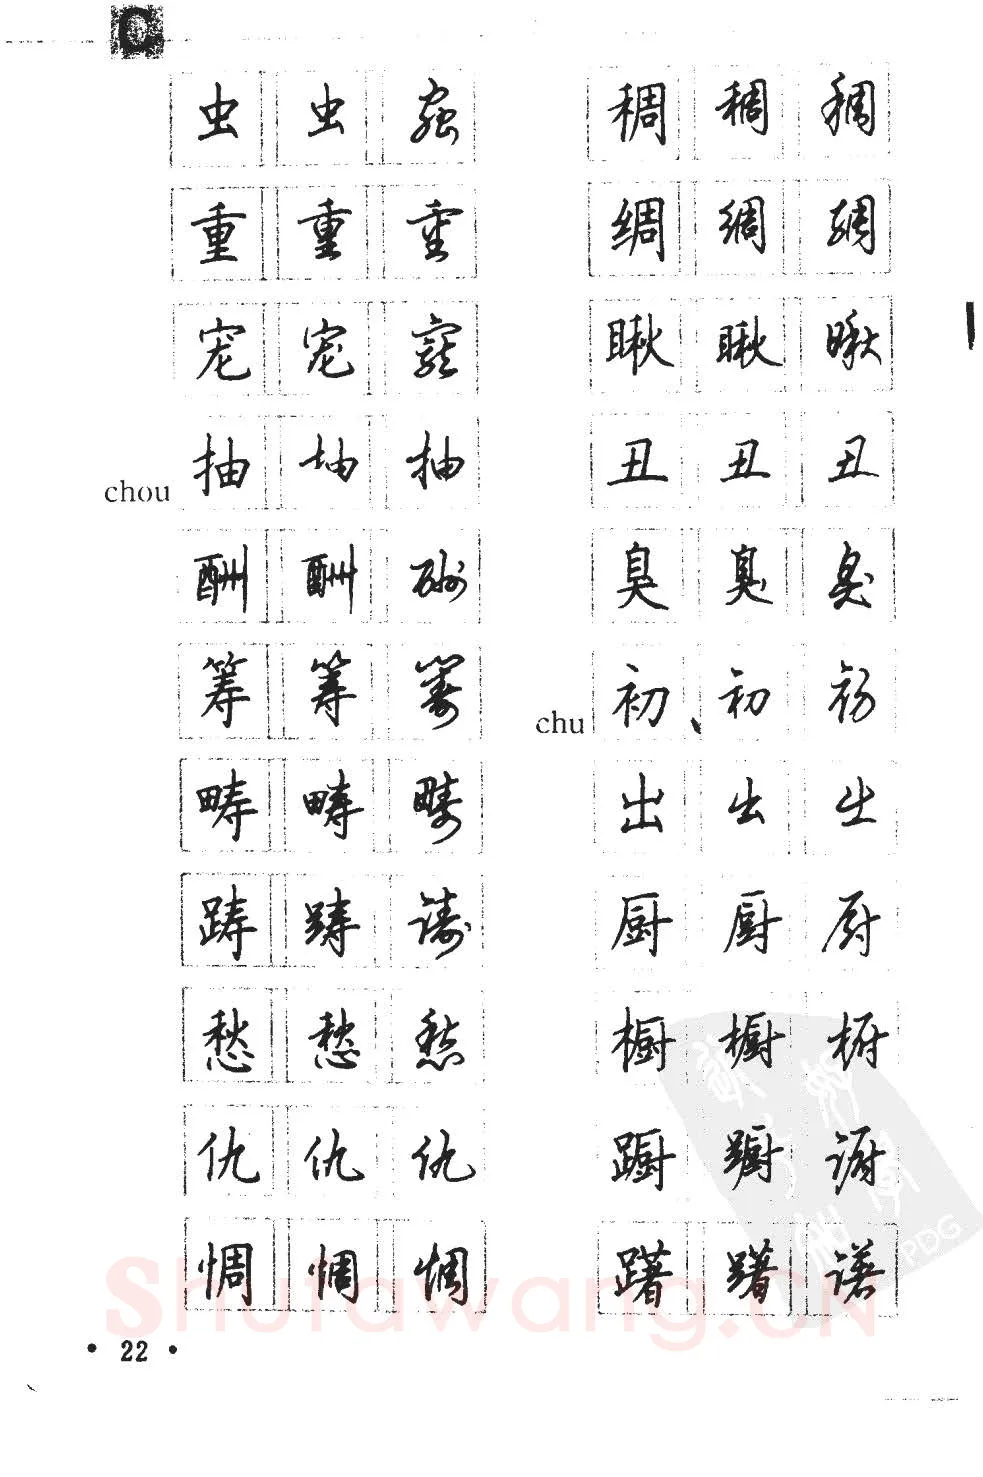 C
虫 虫 蟲
重 重 重
宠 宠 寵
chou 抽 抽 抽
酬 酬 酬
筹 筹 籌
畴 畴 疇
踌 踌 踌
愁 愁 愁
仇 仇 仇
惆 惆 惆
稠 稠 稠
绸 绸 绸
瞅 瞅 瞅
丑 丑 丑
臭 臭 臭
chu 初 初 初
出 出 出
厨 厨 厨
橱 橱 橱
蹰 蹰 蹰
躇 躇 躇
• 22 •
Shufawang.CN
PDG